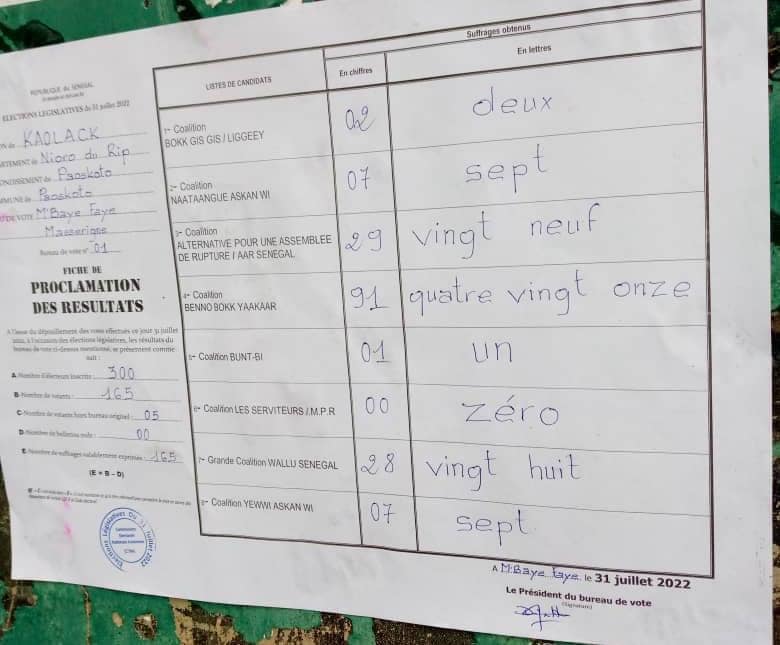 REPUBLIQUE du SENEGAL
ELECTIONS LEGISLATIVES du 31 juillet 2022
KAOLACK
Nioro du Rip
Paoskoto
Paoskoto
DE VOTE M'Baye Faye
Masserigne
Bureau de vote n° 01
FICHE DE
PROCLAMATION
DES RESULTATS
A l'issue du dépouillement des votes effectués ce jour 31 juillet
2022, à l'occasion des élections législatives, les résultats du
bureau de vote ci-dessus mentionné, se présentent comme
suit :
A-Nombre d'électeurs inscrits : 300
B-Nombre de votants : 165
C-Nombre de votants hors bureau originel : 05
D-Nombre de bulletins nuls : 00
E-Nombre de suffrages valablement exprimés : 165
(E = B – D)
Elections Législatives Du 31 Juillet 2022
LISTES DE CANDIDATS
Suffrages obtenus
En chiffres
En lettres
1- Coalition
BOKK GIS GIS / LIGGEEY
02
deux
2- Coalition
NAATAANGUE ASKAN WI
07
sept
3- Coalition
ALTERNATIVE POUR UNE ASSEMBLEE
DE RUPTURE / AAR SENEGAL
29
vingt neuf
4- Coalition
BENNO BOKK YAAKAAR
91
quatre vingt onze
5- Coalition BUNT-BI
01
un
6- Coalition LES SERVITEURS / M.P.R
00
zéro
7- Grande Coalition WALLU SENEGAL
28
vingt huit
8- Coalition YEWWI ASKAN WI
07
sept
A M'Baye Faye le 31 juillet 2022
Le Président du bureau de vote
(Signature)